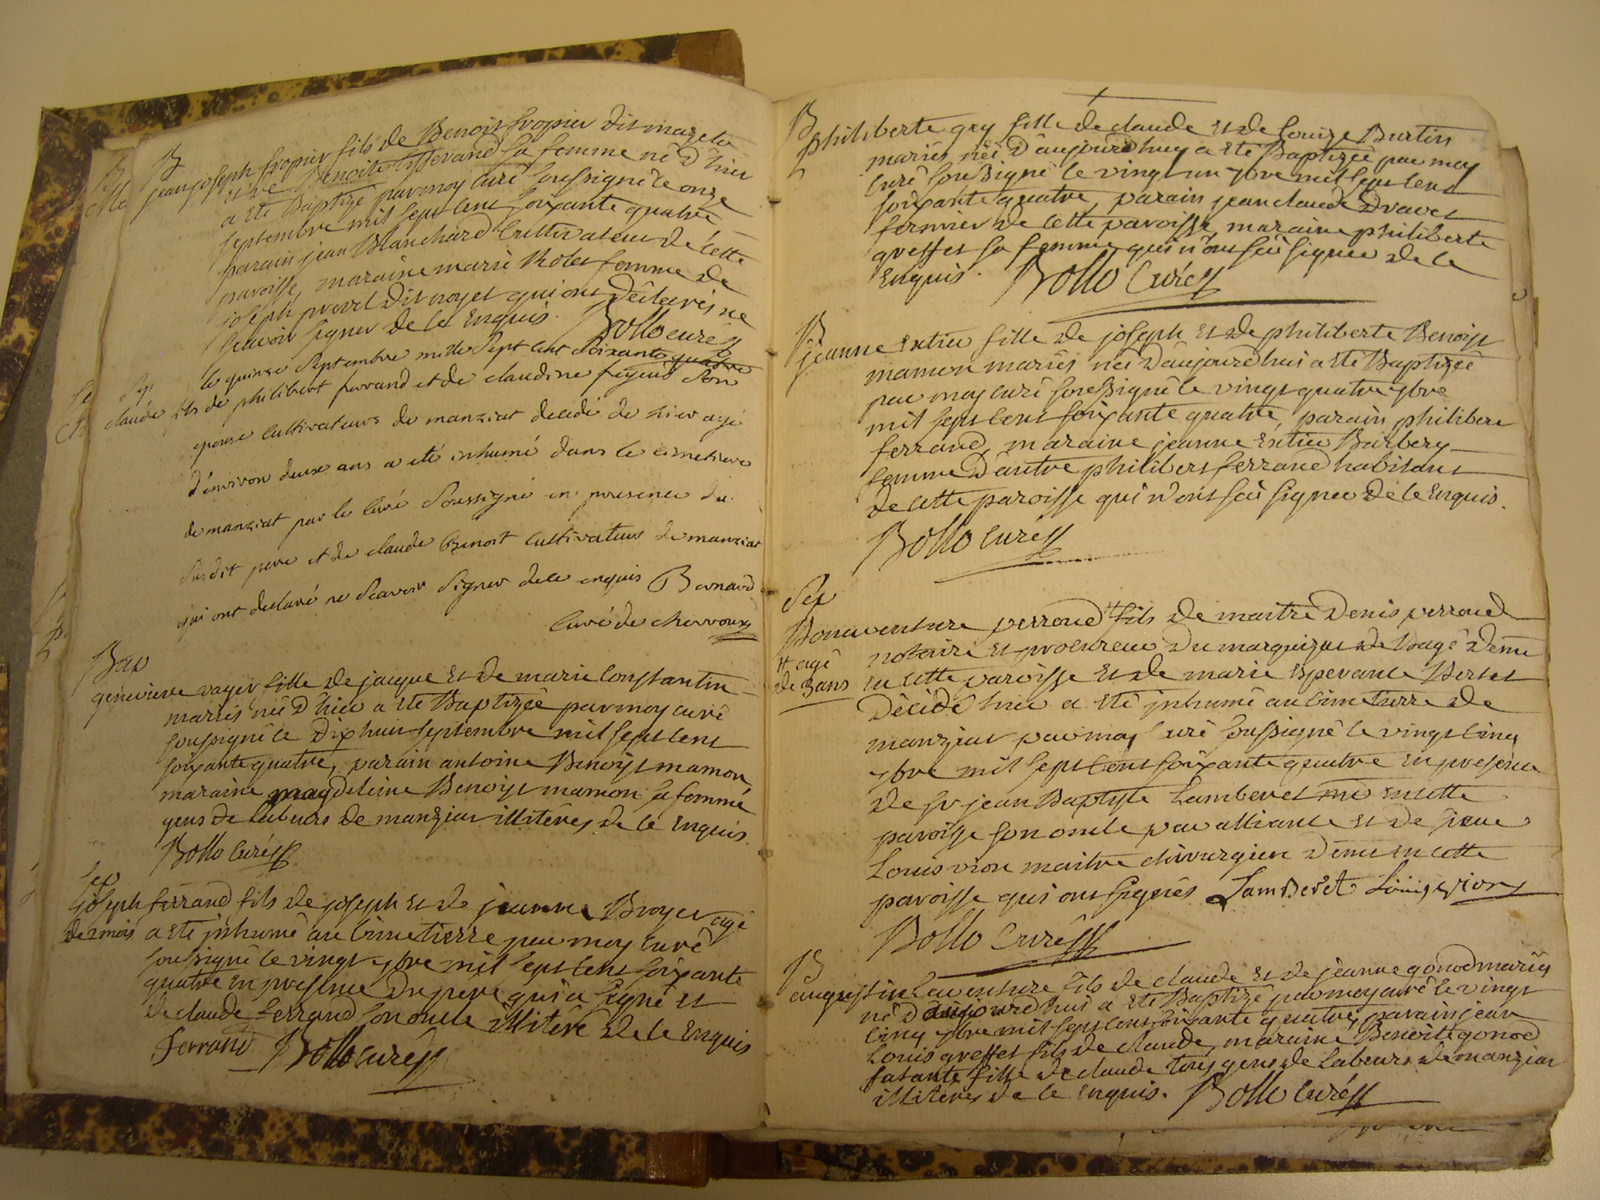 B
jean joseph fropier fils de Benoist fropier dit
et de Benoite ferrand sa femme né d'hier
a eté Baptizé par moy curé soussigné le onze
septembre mil sept cent soixante quatre
parain jean Blanchard Cultivateur de cette
paroisse, maraine marie Rolet femme de
joseph dit noyet qui ont déclarés ne
scavoir signer de ce enquis. Bollo curé
Sep
le quinze Septembre mille Sept cent Soixante quatre
claude fils de philibert ferrand et de claudine feyeus Son
epouse cultivateurs de manziat decédé de hier agé
d'environ deux ans a eté inhumé dans le cimetiere
de manziat par le Curé Soussigné en presence du
Susdit pere et de claude Benoit Cultivateurs de manziat
qui ont declaré ne Scavoir Signer de ce enquis Bernard
Curé de chevroux
Bap
genevieve vayer fille de jacque et de marie Constantin
mariés née d'hier a eté Baptizée par moy curé
soussigné le dix huit septembre mil sept cent
soixante quatre, parain antoine Benoist mamon
maraine magdeleine Benoist mamon sa femme
gens de Labeurs de manziat illiterés de ce enquis.
Bollo Curé
Sep
joseph ferrand fils de joseph et de jeanne Broyer agé
de 2 mois a eté inhumé au Cimetierre par moy curé
soussigné le vingt 7bre mil sept cent soixante
quatre en presence du pere qui a signé et
de claude ferrand son oncle illiteré de ce enquis
Ferrand Bollo curé
B
philiberte gey fille de claude et de Louize Burtin
mariés née d'aujourd'huy a eté Baptizée par moy
Curé soussigné le vingt un 7bre mil sept cent
soixante quatre, parain jean claude Dravet
fermier de cette paroisse, maraine philiberte
greffet sa femme qui n'ont sçû signer de ce
enquis. Bollo Curé
B
jeanne extier fille de joseph et de philiberte Benoist
mamon mariés née d'aujourd'hui a eté Baptizée
par moy curé soussigné le vingt quatre 7bre
mil sept cent soixante quatre, parain philibert
ferrand, maraine jeanne extier Barbery
femme d'autre philibert ferrand habitans
de cette paroisse qui n'ont sçû signer de ce enquis.
Bollo curé
Sep
Bonaventure perroud # fils de maitre Denis perroud
# agé notaire et procureur du marquizat de Bagé demt
de 3 ans en cette paroisse et de marie Esperance Bertet
décédé hier a eté inhumé au Cimetierre de
manziat par moy curé soussigné le vingt cinq
7bre mil sept cent soixante quatre en presence
de sr jean Baptiste Lamberet en cette
paroisse son oncle par alliance et de sieur
Louis vion maitre chirurgien demt en cette
paroisse qui ont signés. Lamberet Louis vion
Bollo Curé
B
augustin Laventure fils de claude et de jeanne gonod mariés
né d'aujourd'hui a eté Baptizé par moy curé le vingt
cinq 7bre mil sept cent soixante quatre, parain jean
Louis greffet fils de claude, maraine Benoite gonod
sa tante fille de claude tous gens de Labeurs de manziat
illiterés de ce enquis. Bollo Curé